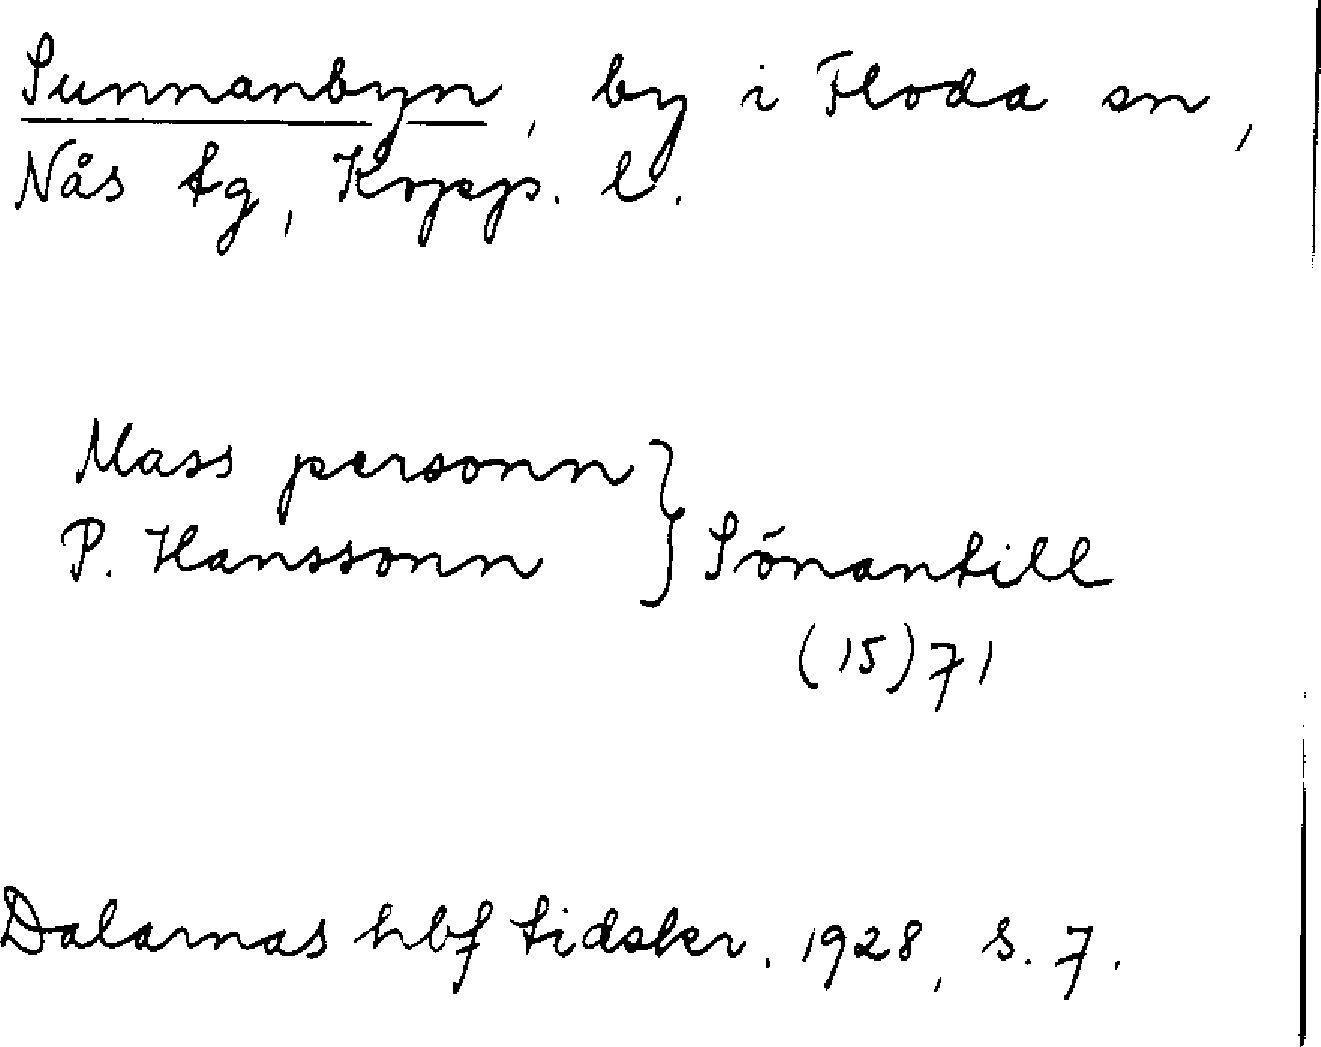 Sunnanbyn, by i Floda sn,
Nås tg, Kopp. l.
Mass personn
P. Hanssonn } Sönantill
(15)71
Dalarnas hbf tidskr. 1928, s. 7.